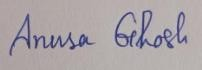 Anusa Ghosh